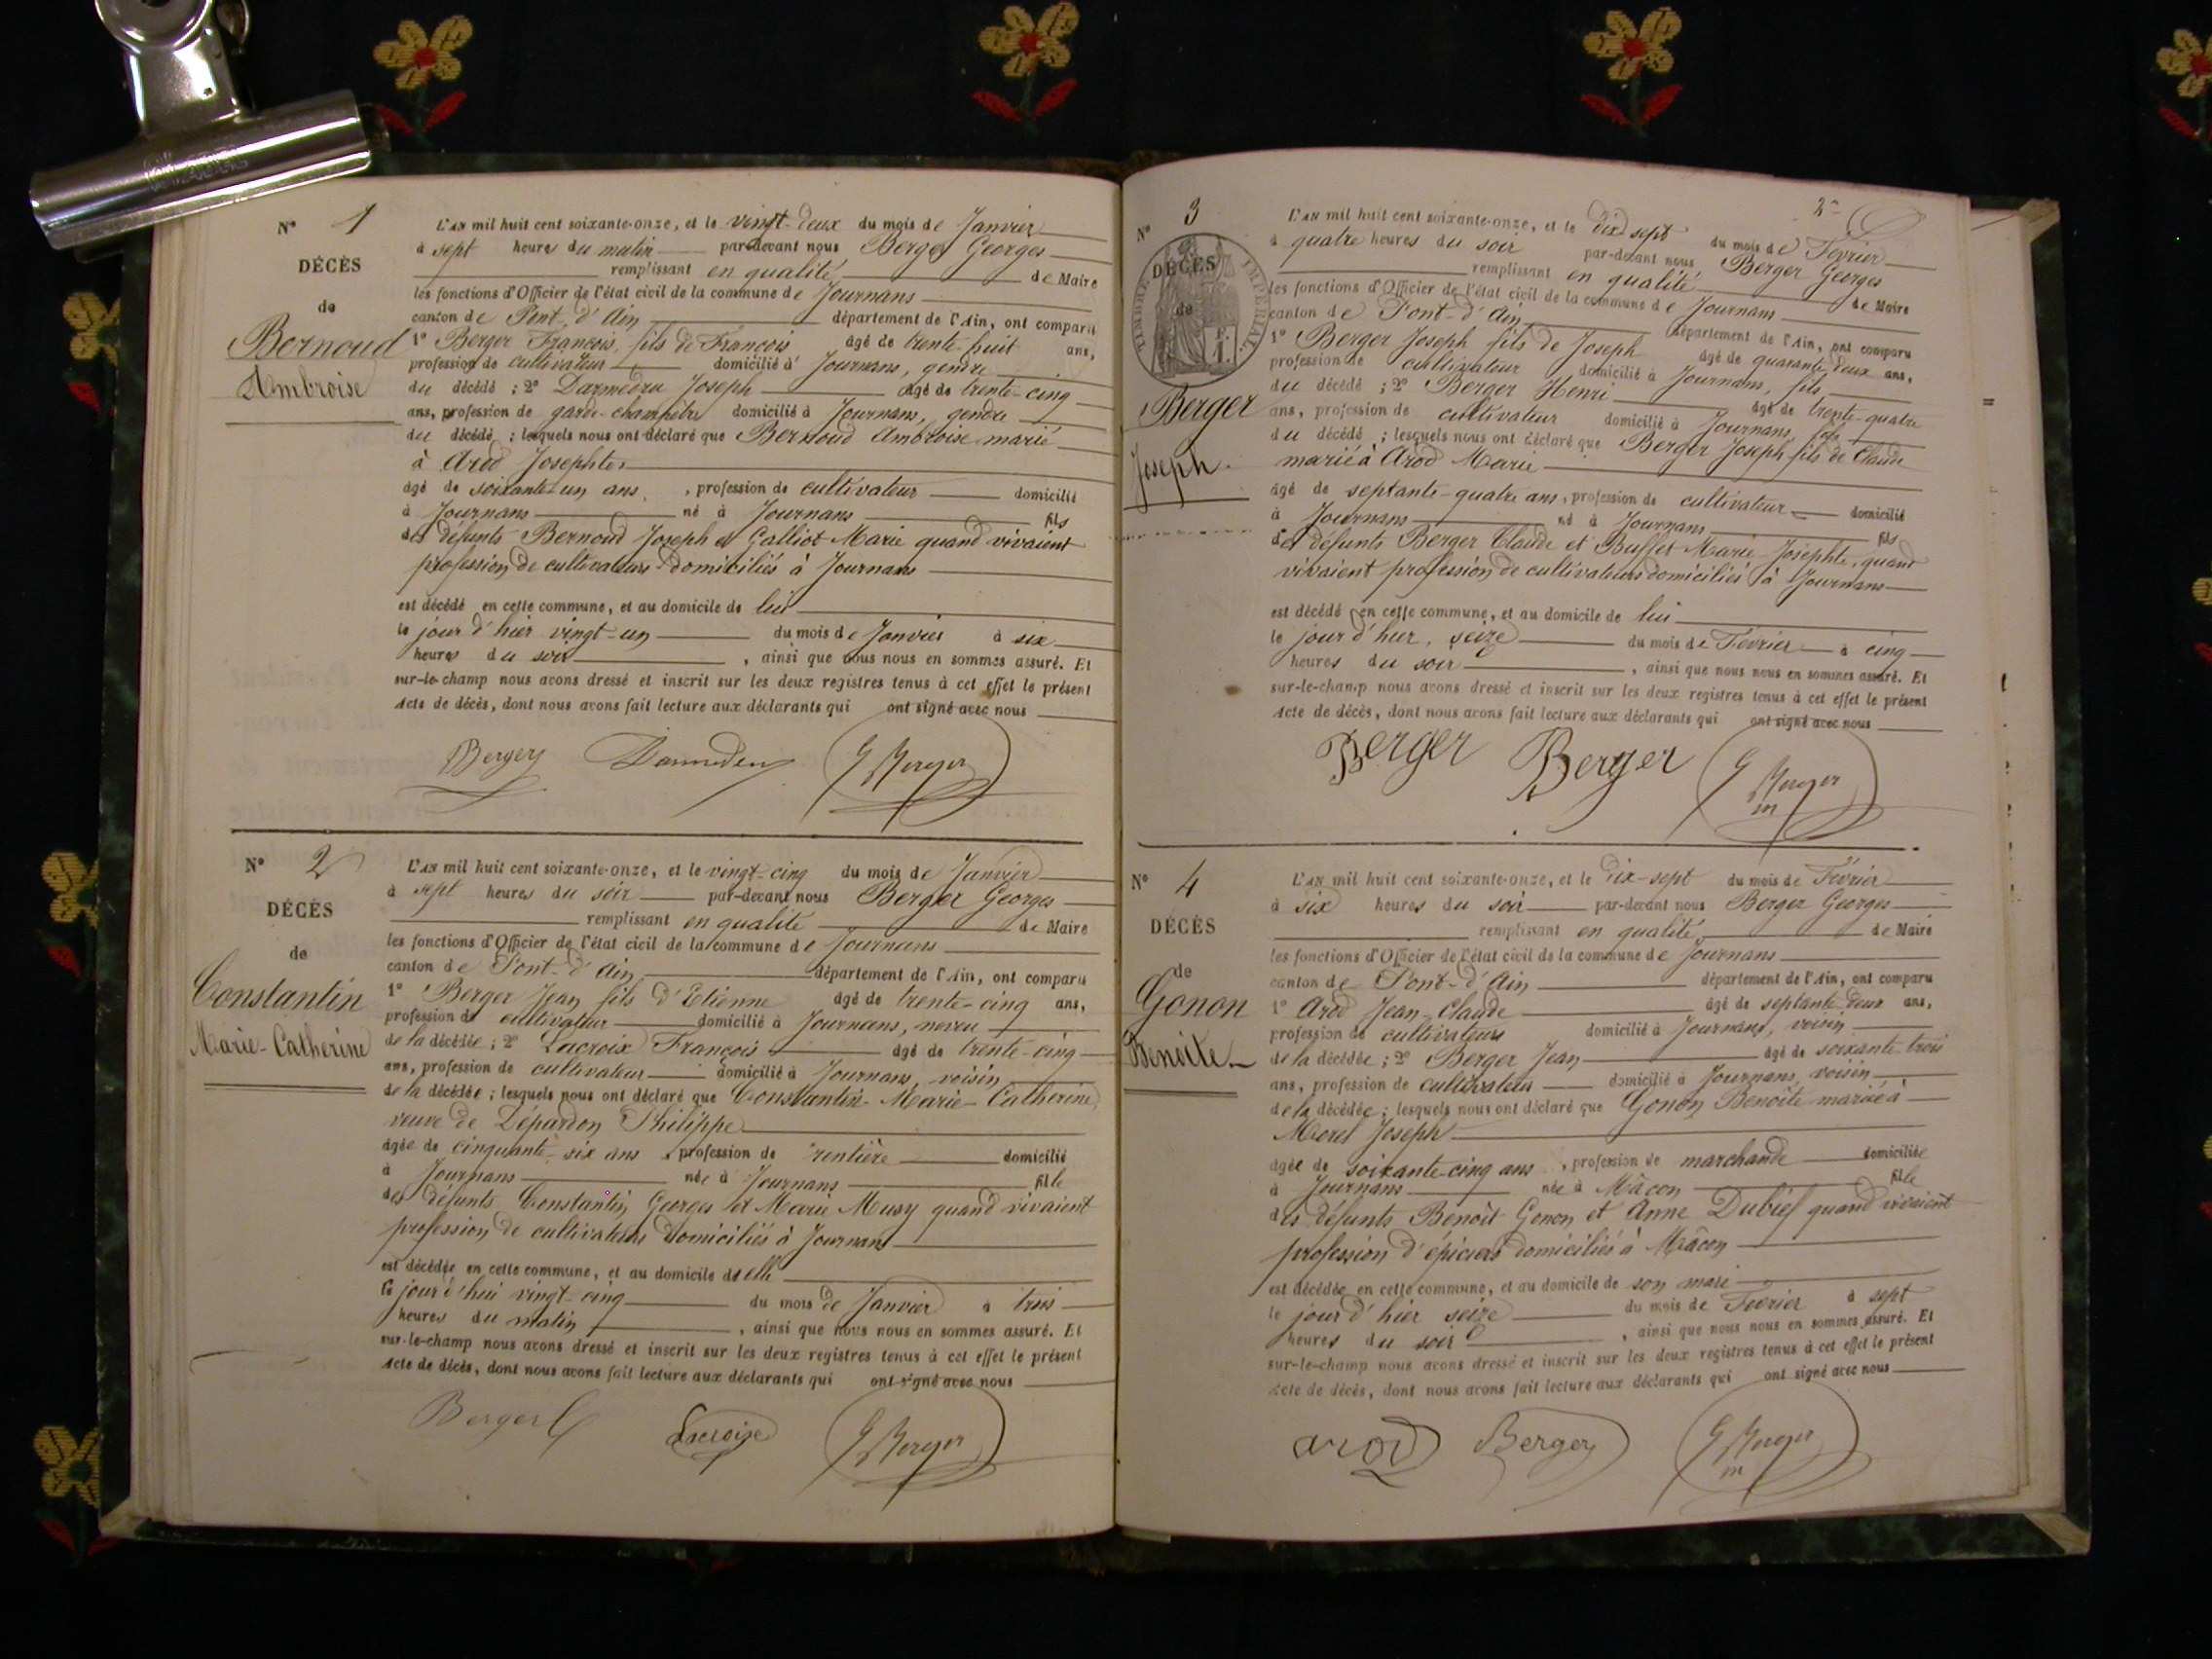 N° 1
DÉCÈS
de
Bernoud
Ambroise
L'AN mil huit cent soixante-onze, et le vingt-deux du mois de Janvier
à sept heures du matin par-devant nous Berger Georges
remplissant en qualité de Maire
les fonctions d'Officier de l'état civil de la commune de Journans
canton de Pont-d'Ain département de l'Ain, ont comparu
1° Berger François, fils de François âgé de trente-huit ans,
profession de cultivateur domicilié à Journans, gendre
du décédé ; 2° Joseph âgé de trente-cinq
ans, profession de garde-champêtre domicilié à Journans, gendre
du décédé ; lesquels nous ont déclaré que Bernoud Ambroise marié
à Arod Josephte
âgé de soixante-un ans, profession de cultivateur domicilié
à Journans né à Journans fils
des défunts Bernoud Joseph et Galliot Marie quand vivaient
profession de cultivateurs domiciliés à Journans
est décédé en cette commune, et au domicile de lui
le jour d'hier vingt-un du mois de Janvier à six
heures du soir, ainsi que nous nous en sommes assuré. Et
sur-le-champ nous avons dressé et inscrit sur les deux registres tenus à cet effet le présent
Acte de décès, dont nous avons fait lecture aux déclarants qui ont signé avec nous
Berger G Berger
N° 2
DÉCÈS
de
Constantin
Marie-Catherine
L'AN mil huit cent soixante-onze, et le vingt-cinq du mois de Janvier
à sept heures du soir par-devant nous Berger Georges
remplissant en qualité de Maire
les fonctions d'Officier de l'état civil de la commune de Journans
canton de Pont-d'Ain département de l'Ain, ont comparu
1° Berger Jean fils d'Etienne âgé de trente-cinq ans,
profession de cultivateur domicilié à Journans, neveu
de la décédée ; 2° Lacroix François âgé de trente-cinq
ans, profession de cultivateur domicilié à Journans, voisin
de la décédée ; lesquels nous ont déclaré que Constantin Marie-Catherine
veuve de Dépardon Philippe
âgée de cinquante-six ans, profession de rentière domicilié
à Journans née à Journans fille
des défunts Constantin Georges et Marie Musy quand vivaient
profession de cultivateurs domiciliés à Journans
est décédée en cette commune, et au domicile d'elle
le jour d'hui vingt-cinq du mois de Janvier à trois
heures du matin, ainsi que nous nous en sommes assuré. Et
sur-le-champ nous avons dressé et inscrit sur les deux registres tenus à cet effet le présent
Acte de décès, dont nous avons fait lecture aux déclarants qui ont signé avec nous
Berger Lacroix G Berger
2
N° 3
DÉCÈS
de
TIMBRE IMPERIAL
Berger
Joseph
L'AN mil huit cent soixante-onze, et le dix sept du mois de Février
à quatre heures du soir par-devant nous Berger Georges
remplissant en qualité de Maire
les fonctions d'Officier de l'état civil de la commune de Journans
canton de Pont-d'Ain département de l'Ain, ont comparu
1° Berger Joseph fils de Joseph âgé de quarante-deux ans,
profession de cultivateur domicilié à Journans, fils
du décédé ; 2° Berger Henri âgé de trente-quatre
ans, profession de cultivateur domicilié à Journans, fils
du décédé ; lesquels nous ont déclaré que Berger Joseph fils de Claude
marié à Arod Marie
âgé de septante-quatre ans, profession de cultivateur domicilié
à Journans né à Journans fils
des défunts Berger Claude et Buffet Marie Josephte, quand
vivaient profession de cultivateurs domiciliés à Journans
est décédé en cette commune, et au domicile de lui
le jour d'hier, seize du mois de Février à cinq
heures du soir, ainsi que nous nous en sommes assuré. Et
sur-le-champ nous avons dressé et inscrit sur les deux registres tenus à cet effet le présent
Acte de décès, dont nous avons fait lecture aux déclarants qui ont signé avec nous
Berger Berger G Berger
m
N° 4
DÉCÈS
de
Gonon
Benoîte
L'AN mil huit cent soixante-onze, et le dix-sept du mois de Février
à six heures du soir par-devant nous Berger Georges
remplissant en qualité de Maire
les fonctions d'Officier de l'état civil de la commune de Journans
canton de Pont-d'Ain département de l'Ain, ont comparu
1° Arod Jean-Claude âgé de septante-deux ans,
profession de cultivateur domicilié à Journans, voisin
de la décédée ; 2° Berger Jean âgé de soixante-trois
ans, profession de cultivateur domicilié à Journans, voisin
de la décédée ; lesquels nous ont déclaré que Gonon Benoîte mariée à
Morel Joseph
âgée de soixante-cinq ans, profession de marchande domiciliée
à Journans née à Mâcon fille
des défunts Benoît Gonon et Anne Dubief quand vivaient
profession d'épiciers domiciliés à Mâcon
est décédée en cette commune, et au domicile de son mari
le jour d'hier seize du mois de Février à sept
heures du soir, ainsi que nous nous en sommes assuré. Et
sur-le-champ nous avons dressé et inscrit sur les deux registres tenus à cet effet le présent
Acte de décès, dont nous avons fait lecture aux déclarants qui ont signé avec nous
arod Berger G Berger
m